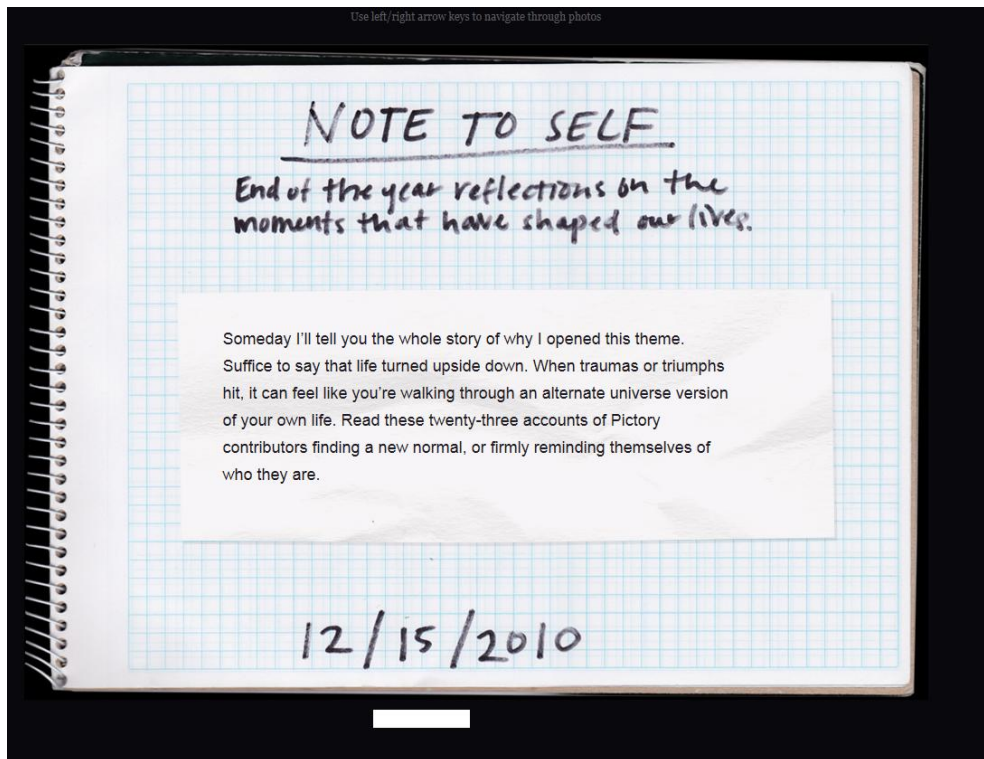 Use left/right arrow keys to navigate through photos
NOTE TO SELF
End of the year reflections on the
moments that have shaped our lives.
Someday I'll tell you the whole story of why I opened this theme.
Suffice to say that life turned upside down. When traumas or triumphs
hit, it can feel like you're walking through an alternate universe version
of your own life. Read these twenty-three accounts of Pictory
contributors finding a new normal, or firmly reminding themselves of
who they are.
12/15/2010